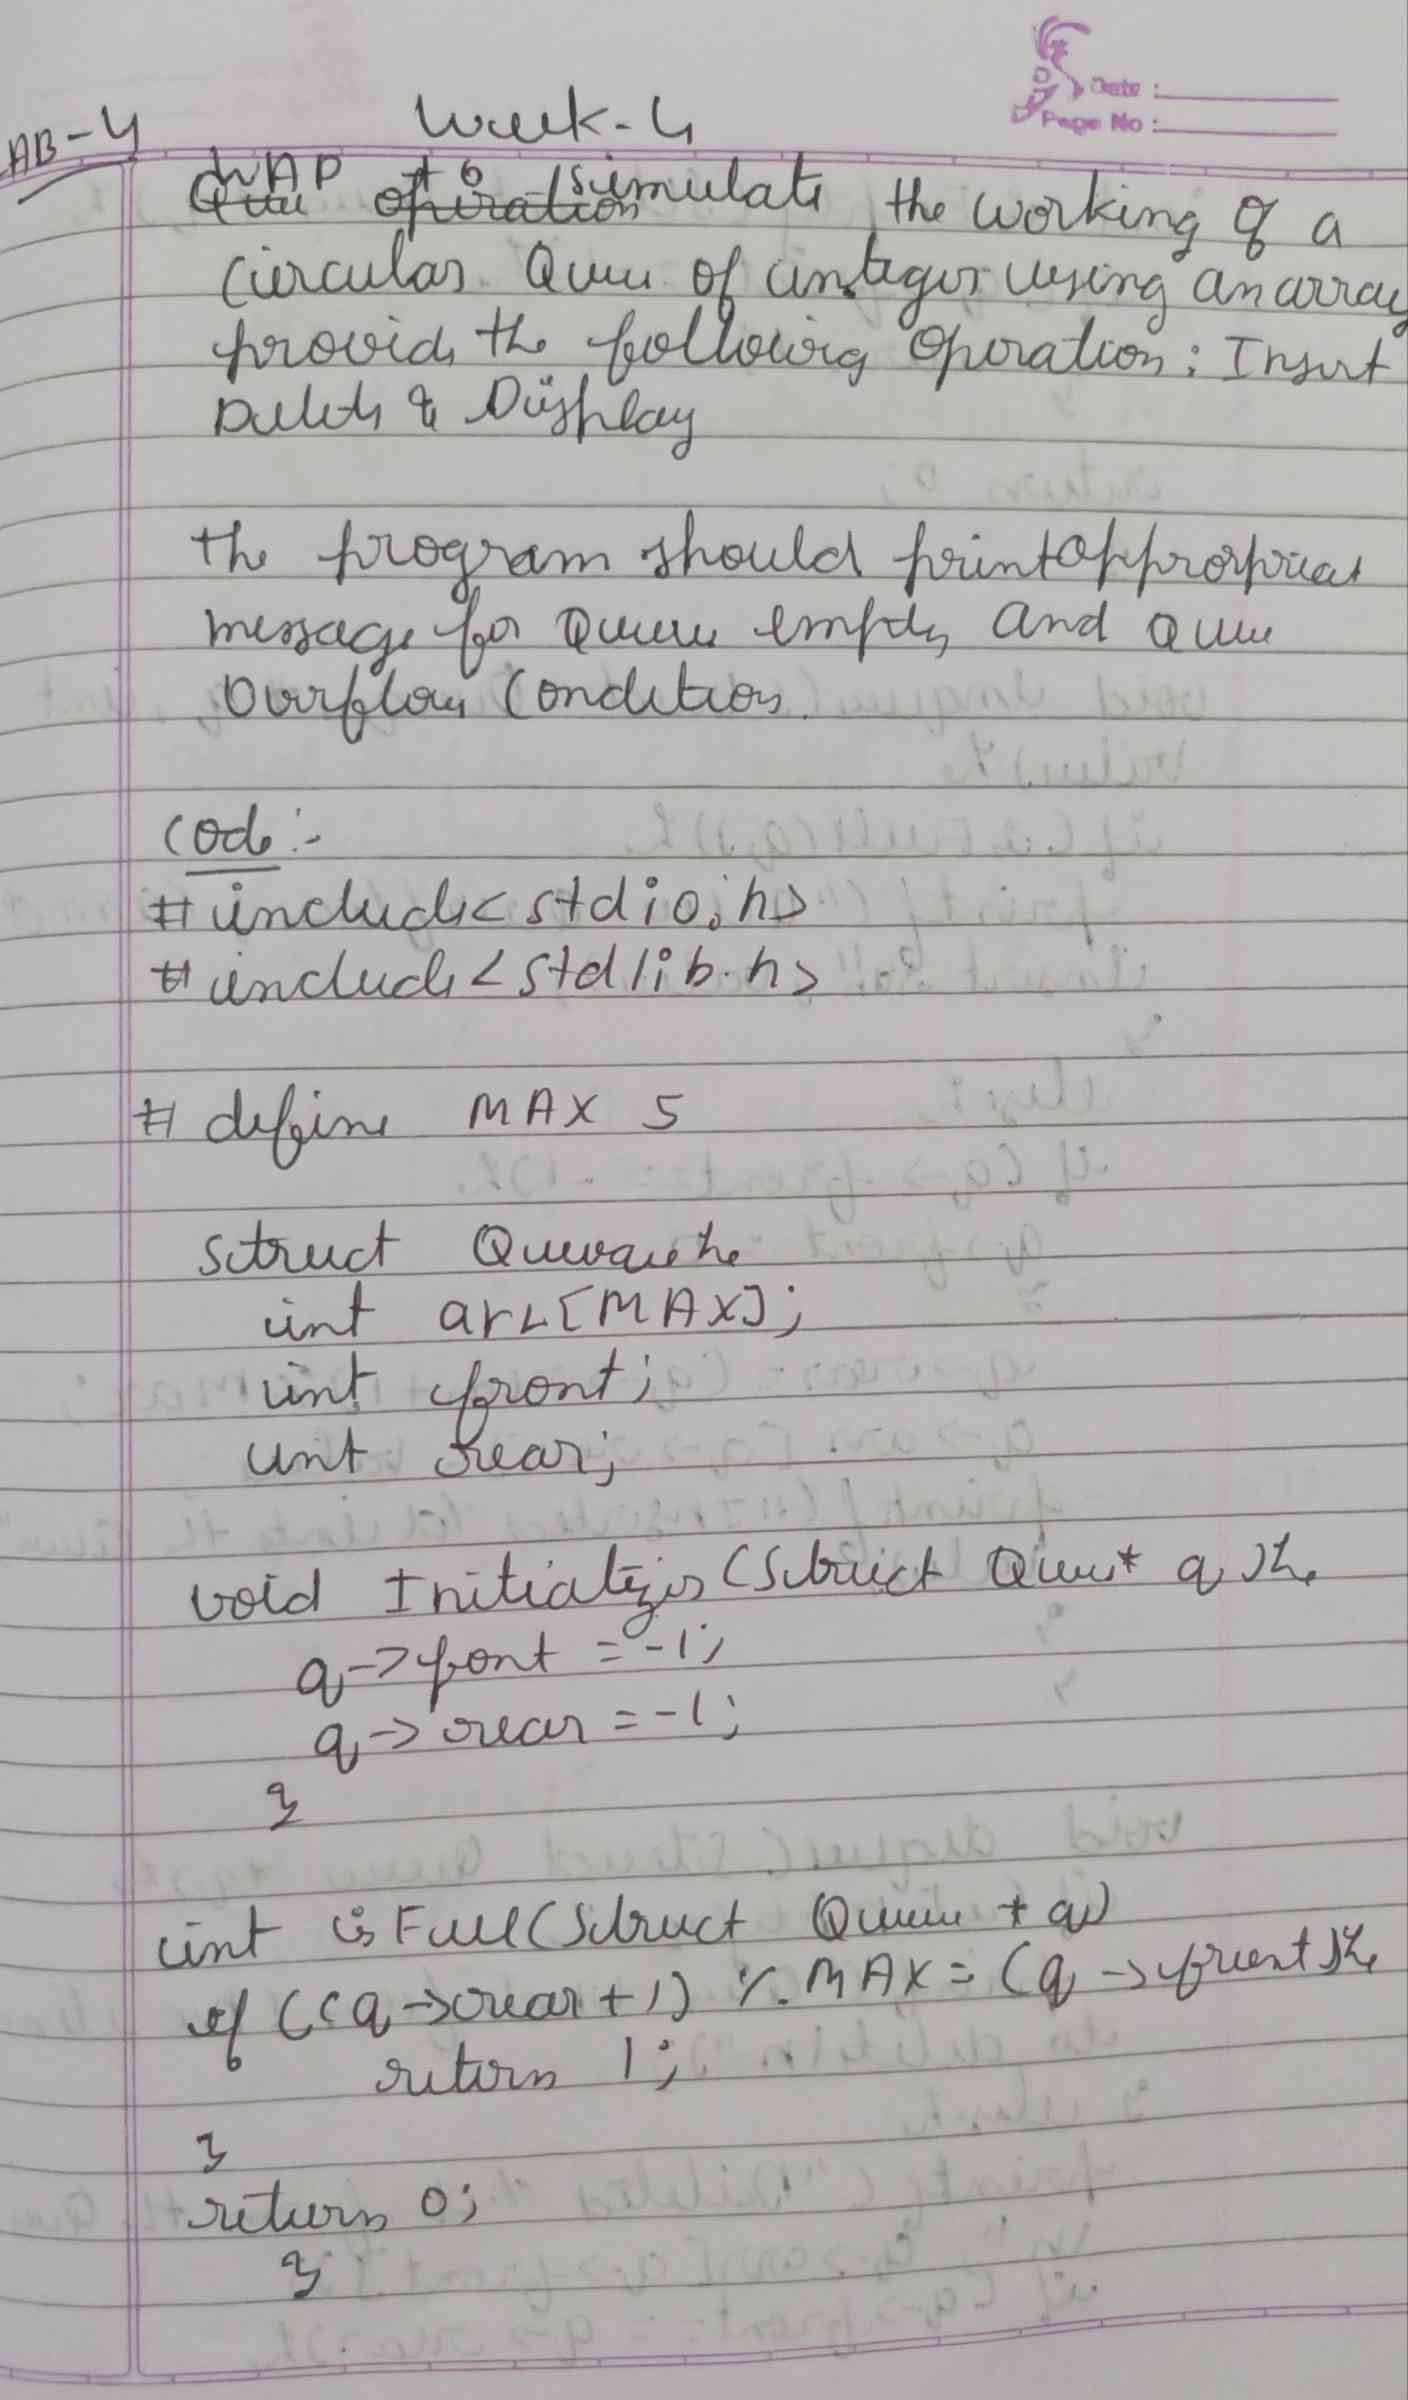 Date :
Page No :
LAB-4
Week-4
WAP to simulate the working of a
Circular Queue of integer using an array
provide the following operation : Insert
Delete & Display
the program should print appropriate
message for Queue empty and Queue
Overflow Condition.
Code :-
#include<stdio.h>
#include<stdlib.h>
# define MAX 5
struct Queue {
int arr[MAX];
int front;
int rear;
void Initialize (Struct Queue* q) {
q->font = -1;
q->rear = -1;
}
int isFull(Struct Queue * q)
if ((q->rear+1) % MAX = (q->front) {
return 1;
}
return 0;
}